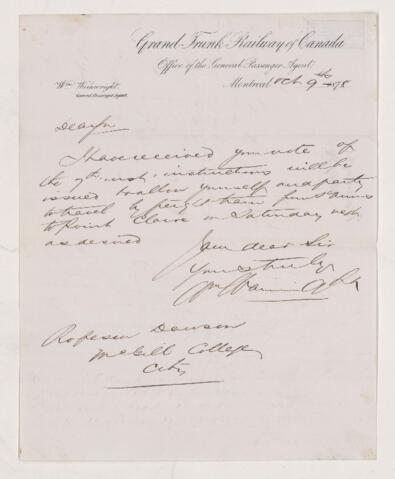 Grand Trunk Railway of Canada
Office of the General Passenger Agent
Wm Wainwright,
General Passenger Agent.
Montreal Oct 9th 1878
Dear Sir
I have received your note of
the 9th inst, instructions will be
issued to allow yourself and party
to travel by freight train from St Annes
to Point Claire on Saturday next
as desired
I am dear Sir
Yours truly
Wm Wainwright
Professor Dawson
McGill College
City